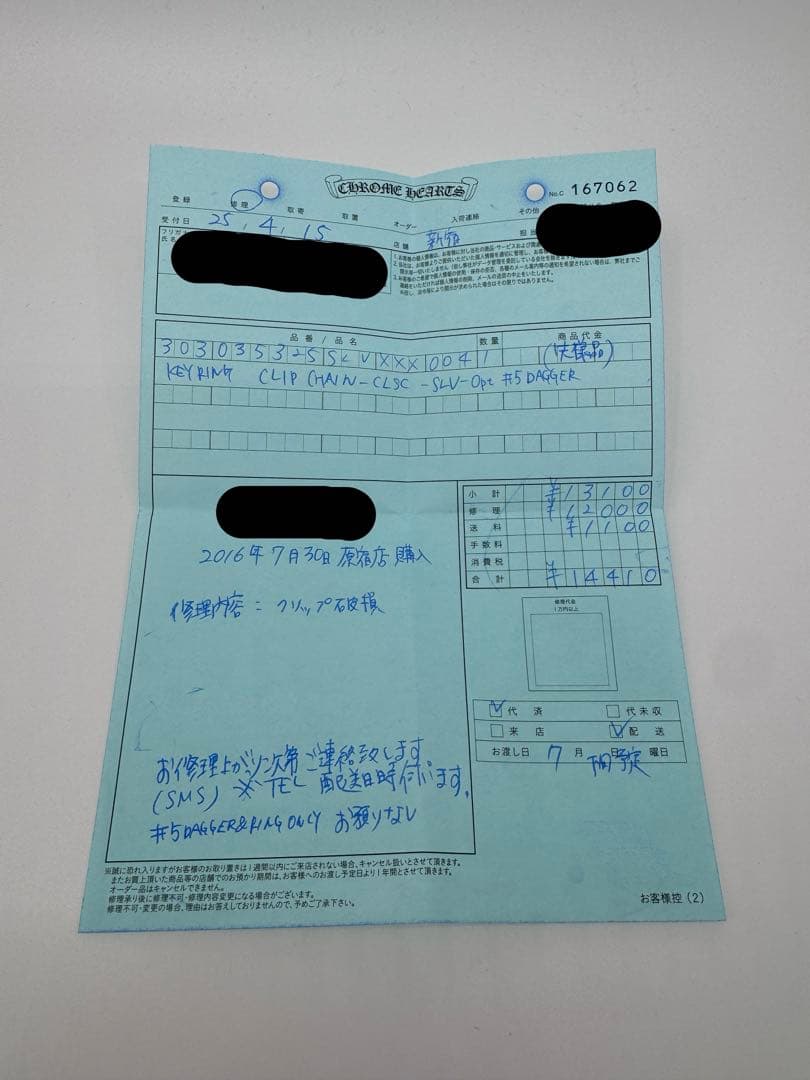 CHROME HEARTS
No.C 167062
登録 修理 取寄 取置 オーダー 入荷連絡 その他
受付日 25. 4. 15 店舗 新宿 担当
フリガナ
氏名
品番 / 品名 数量 商品代金
303035325SLVXXX0041
KEY RING CLIP CHAIN-CLSC-SLV-Opt #5 DAGGER
小計 ¥13100
修理 ¥12000
送料 ¥1100
手数料
消費税
合計 ¥14410
2016年7月30日 原宿店 購入
修理内容 = クリップ破損
修理代金
1万円以上
代済 代未収
来店 配送
お渡し日 7月 日 曜日
下旬予定
お修理上がり次第ご連絡致します
(SMS) ※TEL 配送日時伺います。
#5 DAGGER&RING ONLY お預りなし
※誠に恐れ入りますがお客様のお取り置きは1週間以内にご来店されない場合、キャンセル扱いとさせて頂きます。
またお買上頂いた商品等の店舗でのお預かり期間は、お客様へのお渡し予定日より1年間とさせて頂きます。
オーダー品はキャンセルできません。
修理承り後に修理不可・修理内容変更になる場合がございます。
修理不可・変更の場合、理由はお答えしておりませんので、予めご了承下さい。
お客様控(2)